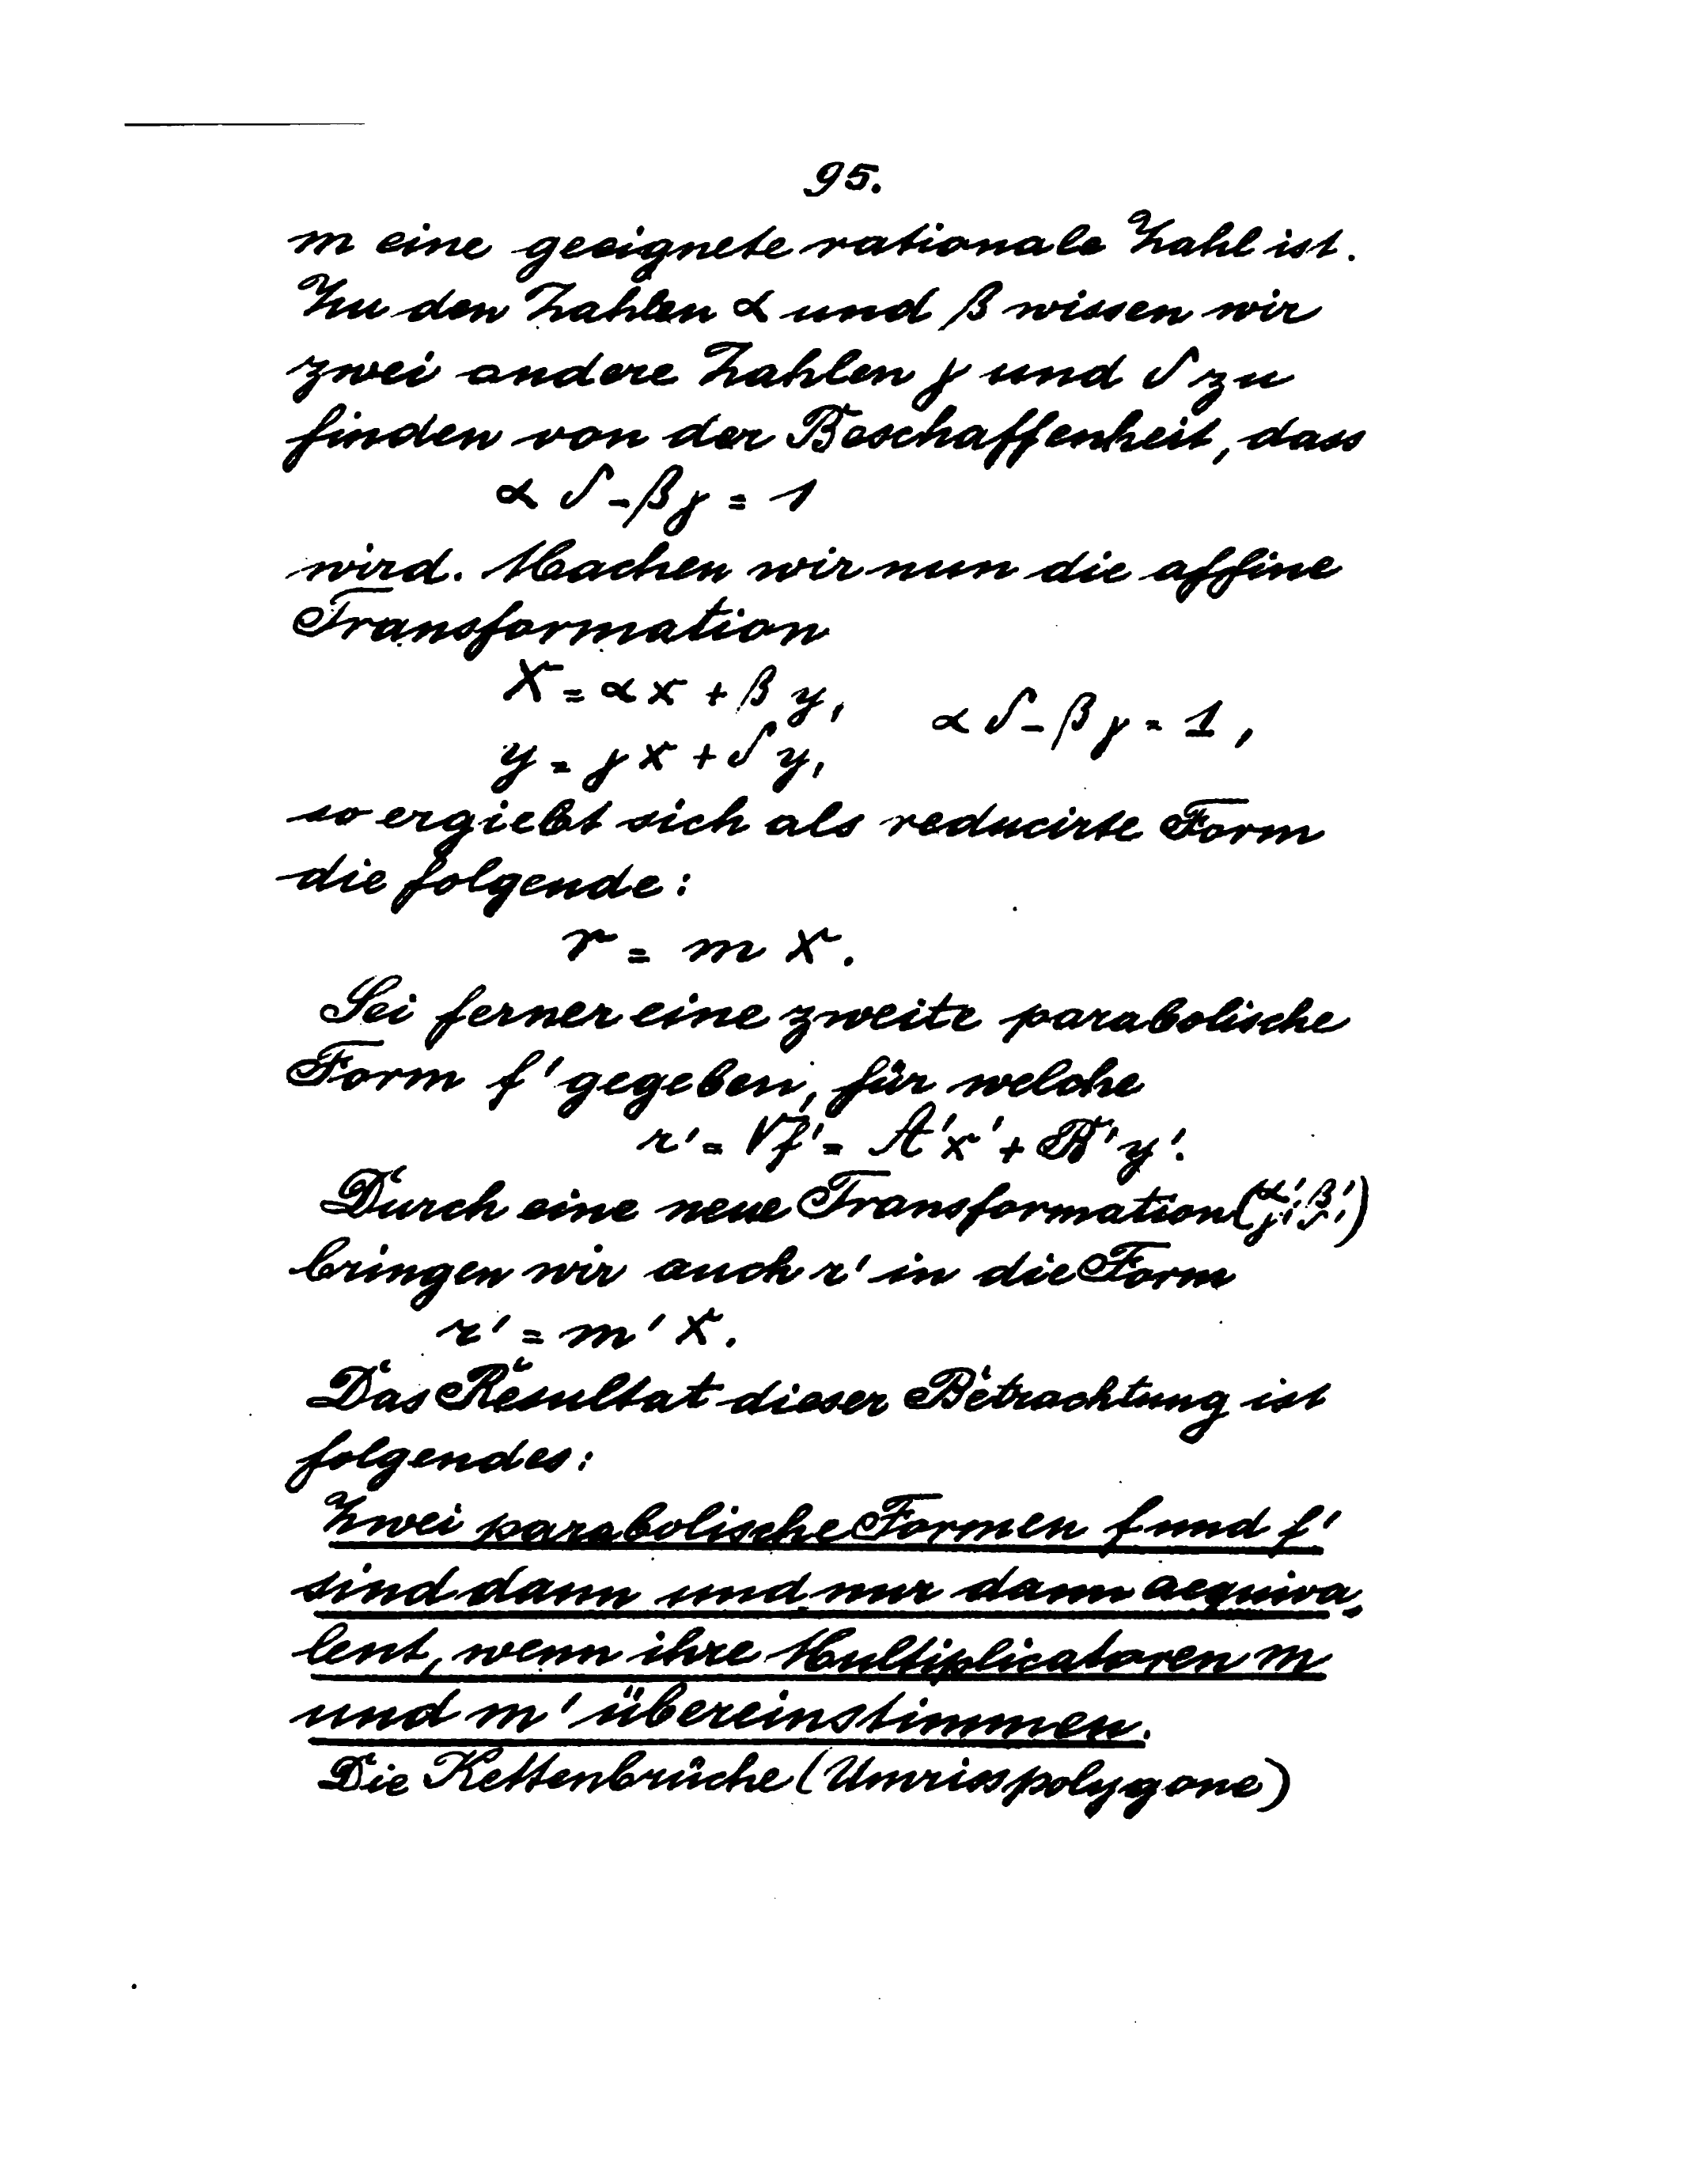 95.
m eine geeignete rationale Zahl ist.
Zu den Zahlen α und β wissen wir
zwei andere Zahlen γ und δ zu
finden von der Beschaffenheit, dass
α δ - β γ = 1
wird. Machen wir nun die affine
Transformation
X = α x + β y, α δ - β γ = 1,
y = γ x + δ y,
so ergiebt sich als reducirte Form
die folgende:
r = m X.
Sei ferner eine zweite parabolische
Form f' gegeben, für welche
r' = √f' = A'x' + B'y'.
Durch eine neue Transformation (α', β' γ', δ')
bringen wir auch r' in die Form
r' = m' X.
Das Resultat dieser Betrachtung ist
folgendes:
Zwei parabolische Formen f und f'
sind dann und nur dann aequiva-
lent, wenn ihre Multiplicatoren m
und m' übereinstimmen.
Die Kettenbrüche (Umrisspolygone)